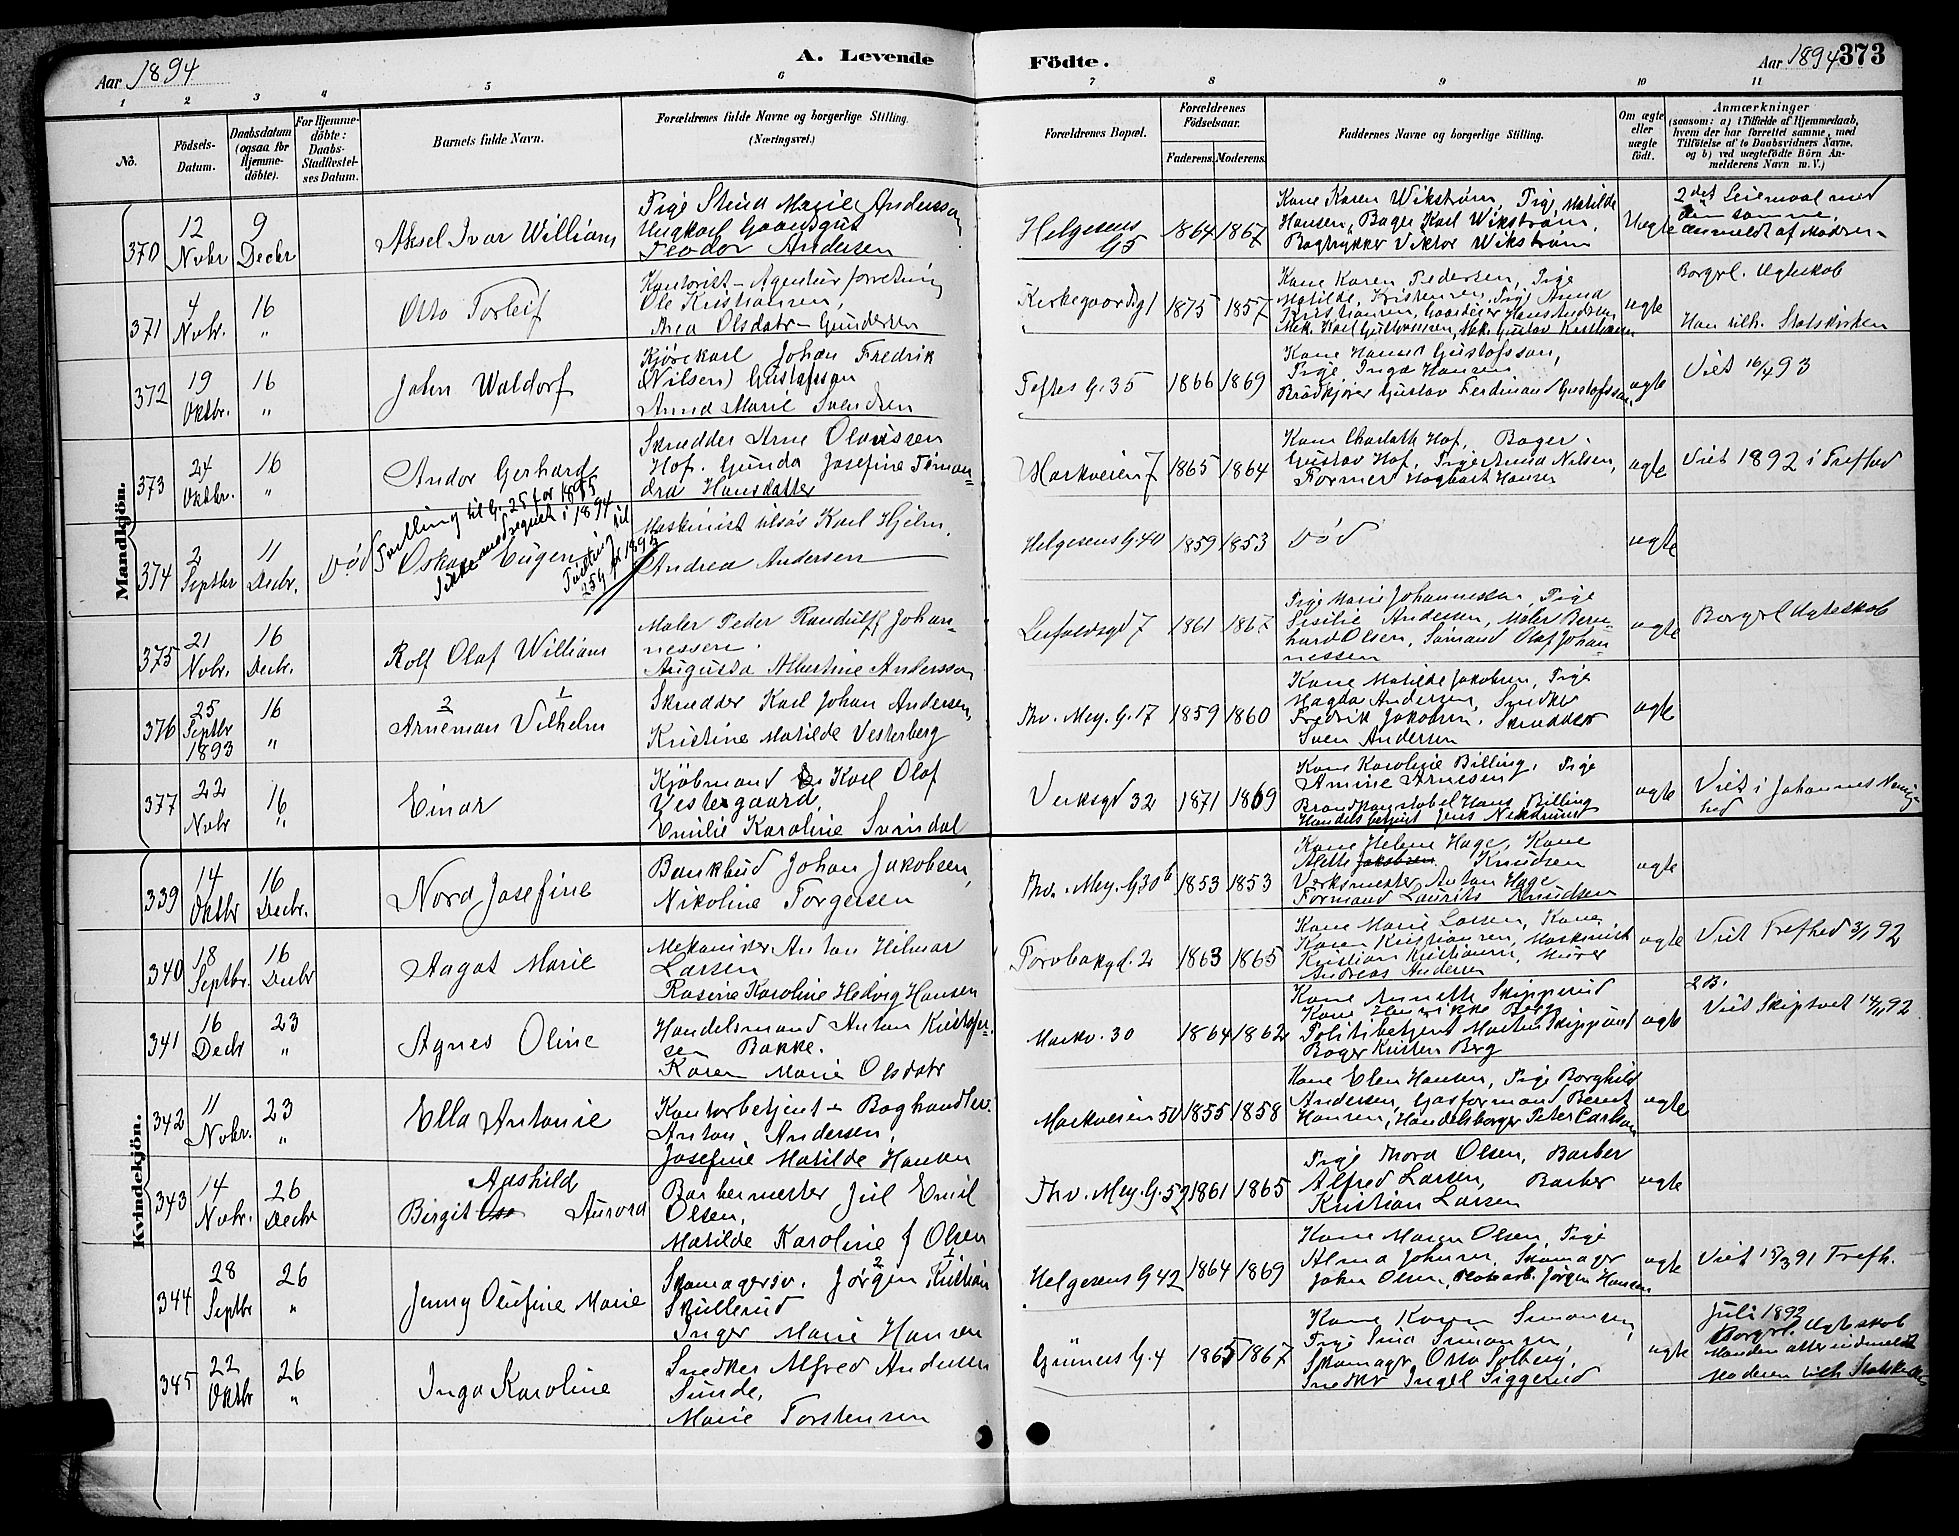 Aar 1894
A. Levende
Födte.
Aar 1894 373
1 2 3 4 5 6 7 8 9 10 11
No.
Födsels-
Datum.
Daabsdatum
(ogsaa for
Hjemme-
döbte).
For Hjemme-
döbte:
Daabs-
Stadfæstel-
ses Datum.
Barnets fulde Navn.
Forældrenes fulde Navne og borgerlige Stilling.
(Næringsvei.)
Forældrenes Bopæl.
Forældrenes
Födselsaar.
Faderens. Moderens.
Faddernes Navne og borgerlige Stilling.
Om ægte
eller
uægte
født.
Anmærkninger
(saasom: a) i Tilfælde af Hjemmedaab,
hvem der har forrettet samme, med
Tilföielse af to Daabsvidners Navne,
og b) ved uægtefödte Börn An-
melderens Navn m. V.)
Mandkjön.
370
12
Novbr
9
Decbr
Aksel Ivar William
Pige Stina Marie Andersson
Ungkarl Gaardsgut
Teodor Andersen
Helgesens
G 5
1864 1867
Kone Karen Wikstrøm, Pige Matilde
Hansen, Bager Karl Wikstrøm,
Bogtrykker Viktor Wikstrøm
Uægte
2det Leiermaal med
den samme.
Anmeldt af Moderen
371
4
Novbr.
16
"
Otto Torleif
Kontorist - Agentur forretning
Ole Kristiansen,
Anea Olsdatr Gundersen
Kirkegaardsg 1
1875 1857
Kone Karen Pedersen, Pige
Matilde Kristensen, Pige Anna
Kristiansen, Gaardeier Hans Knudsen
Mek. Karl Gulbransen, Mek. Gustav Kristiansen
ægte
Borgrl. Ægteskab
Han tilh. Statskirken
372
19
Oktbr.
16
"
John Waldorf
Kjørekarl Johan Fredrik
(Nilsen) Gustafsson
Anna Marie Svendsen
Toftes G. 35
1866 1869
Kone Hanna Gustafsson,
Pige Inga Hansen
Brødkjører Gustav Ferdinand Gustafsson
ægte
Viet 16/4 93
373
24
Oktbr.
16
"
Andor Gerhard
Skrædder Arne Olavissen
Hof. Gunda Josefine Toman-
dra Hansdatter
Markveien 7
1865 1864
Kone Charlotte Hof, Bager
Gustav Hof, Pige Anna Nilsen,
Former Hagbart Hansen
ægte
Viet 1892 i Trefhed
374
2
Septbr
11
Decbr.
Död
Tvilling til G. 25 for 1895
Ikke medregnet i 1894
Oskar Eugen
Tvilling til
25 g for 1895
Maskinist tilsøs Karl Hjelm.
Andrea Andersen
Helgesens G. 40
1859 1853
Död
ægte
375
21
Novbr.
16
Decbr.
Rolf Olaf William
Maler Peder Randulff Johan-
nessen.
Augusta Albertine Andersson
Leifaldsgd 7
1861 1867
Pige Marie Johannessen, Pige
Sisilie Andersen, Maler Bern-
hard Olsen, Sømand Olaf Johan-
nessen
ægte
Borgrl Ægteskab
376
25
Septbr
1893
16
"
2 1
Arneman Vilhelm
Skrædder Karl Johan Andersen,
Kristine Matilde Vesterberg
Thv. Mey. G. 17
1859 1860
Kone Matilde Jakobsen, Pige
Magda Andersen, Snedker
Fredrik Jakobsen, Skrædder
Sven Andersen
ægte
377
22
Novbr
16
"
Einar
Kjøbmand Karl Olaf
Vestergaard,
Emilie Karoline Svindal
Verksgd 32
1871 1869
Kone Karoline Billing, Pige
Amine Arnesen
Brandkonstabel Hans Billing
Handelsbetjent Jens
ægte
Viet i Johannes Menig-
hed
Kvindekjön.
339
14
Oktbr
16
Decbr.
Nora Josefine
Bankbud Johan Jakobsen,
Nikoline Torgersen
Thv. Mey. G 30 b
1853 1853
Kone Helene Hage, Kone
Alette Jakobsen Knudsen
Verksmester Anton Hage
Formand Laurits Knudsen
ægte
340
18
Septbr.
16
Decbr
Aagot Marie
Mekaniker Anton Hilmar
Larsen
Rosine Karoline Hedvig Hansen
Torvbakgd. 2
1863 1865
Kone Marie Larsen, Kone
Karen Kristiansen, Maskinist
Kristian Kristiansen, Murer
Andreas Andersen
ægte
Viet Trefhed 3/1 92
341
16
Decbr
23
"
Agnes Oline
Handelsmand Anton Kristofer-
sen Bakke.
Karen Marie Olsdatr
Markv. 30
1864 1862
Kone Annette Skipperud
Kone Henrikke Berg
Politibetjent Martin Skipperud
Bager Kristen Berg
ægte
2 B.
Viet Skiptvet 14/11 92
342
11
Novbr.
23
"
Ella Antonie
Kontorbetjent - Boghandler
Anton Andersen,
Josefine Matilde Hansen
Markveien 50
1855 1858
Kone Elen Hansen, Pige Borghild
Andersen, Gasformand Bernt
Hansen, Handelsborger Peter Carlsen
ægte
343
14
Novbr.
26
Decbr
Aashild
Birgit Aurora
Barbermester Jul Emil
Olsen,
Matilde Karoline f Olsen
Thv. Mey. G. 52
1861 1865
Pige Thora Olsen, Barber
Alfred Larsen, Barber
Kristian Larsen
ægte
344
28
Septbr
26
"
Jenny Olufine Marie
2 1
Skomagersv. Jørgen Kristian
Skullerud
Inger Marie Hansen
Helgesens G 42
1864 1869
Kone Maren Olsen, Pige
Alma Johnsen, Skomager
John Olsen, Jørgen Hansen
ægte
Viet 15/3 91 Trefh.
345
22
Oktbr
26
"
Inga Karoline
Snedker Alfred Andersen
Sunde,
Marie Torstensen
Grüners G. 4
1865 1867
Kone Karen Simonsen,
Pige Lina Simonsen,
Skomagr Otto Solberg,
Snedkr Ingel Siggerud
ægte
Juli 1892
Borgrl. Ægteskab
Manden atter indmeldt
Moderen tilh Statskirken